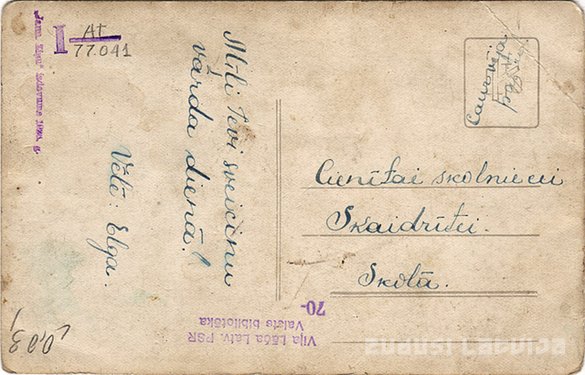 I At
77.041
Mīļi Tevi sveicinu
vārda dienā!
Vēlē: Elga.
Cienītai skolniecei
Skaidrītei.
Skolā.
Vija Lāča Latv. PSR
Valsts bibliotēka
70-
ZUDUSI LATVIJA